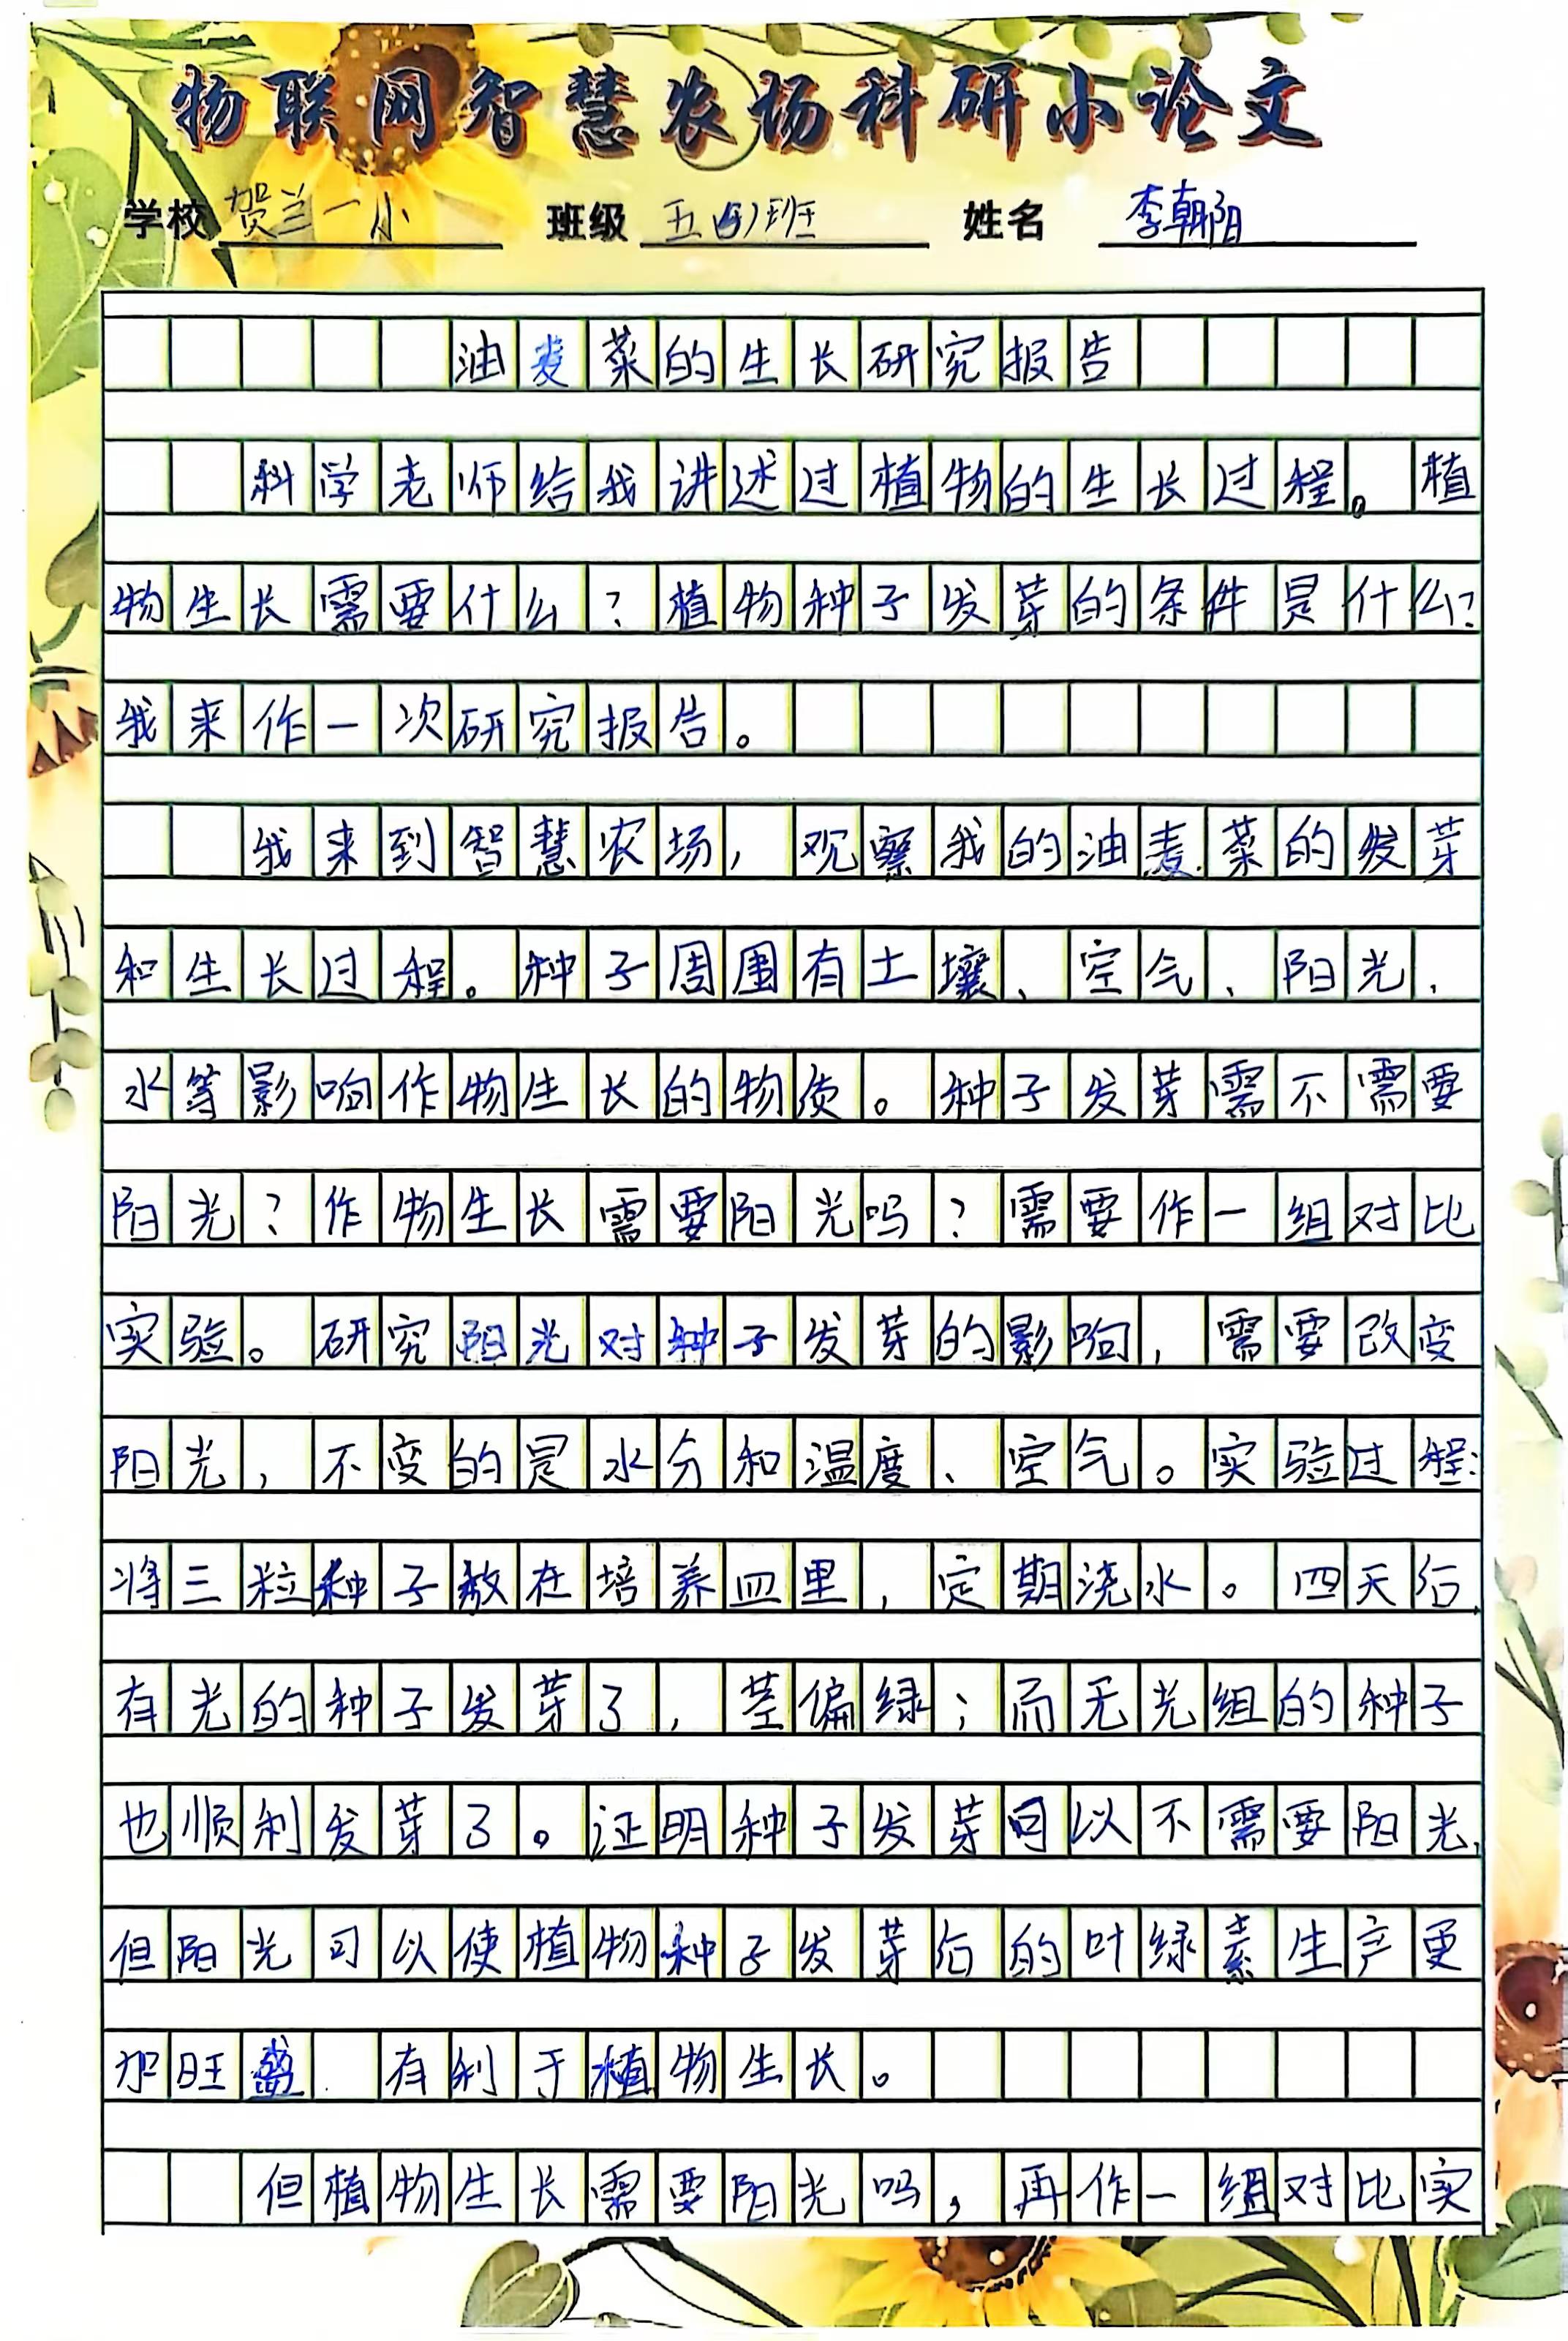 物联网智慧农场科研小论文
学校 贺兰一小 班级 五(4)班 姓名 李朝阳
油麦菜的生长研究报告
科学老师给我讲述过植物的生长过程。植
物生长需要什么?植物种子发芽的条件是什么?
我来作一次研究报告。
我来到智慧农场,观察我的油麦菜的发芽
和生长过程。种子周围有土壤、空气、阳光、
水等影响作物生长的物质。种子发芽需不需要
阳光?作物生长需要阳光吗?需要作一组对比
实验。研究阳光对种子发芽的影响,需要改变
阳光,不变的是水分和温度、空气。实验过程:
将三粒种子放在培养皿里,定期浇水。四天后,
有光的种子发芽了,茎偏绿;而无光组的种子
也顺利发芽了。证明种子发芽可以不需要阳光,
但阳光可以使植物种子发芽后的叶绿素生产更
加旺盛.有利于植物生长。
但植物生长需要阳光吗,再作一组对比实